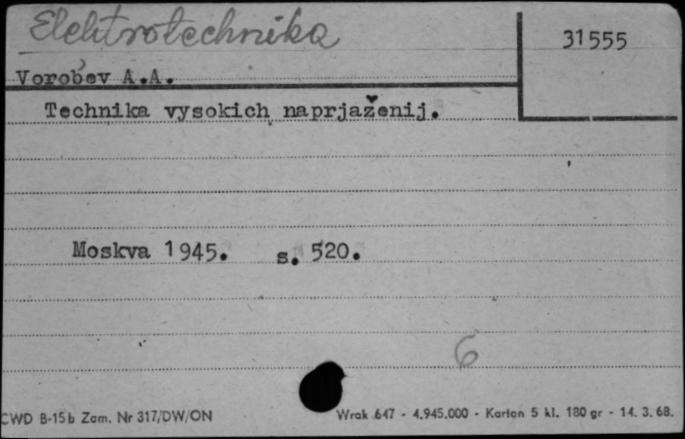 Elektrotechnika
31555
Vorobév A.A.
Technika vysokich naprjaženij.
Moskva 1945. s. 520.
6
CWD B-15b Zam. Nr 317/DW/ON Wrak 647 - 4.945.000 - Karton 5 kl. 180 gr - 14. 3. 68.